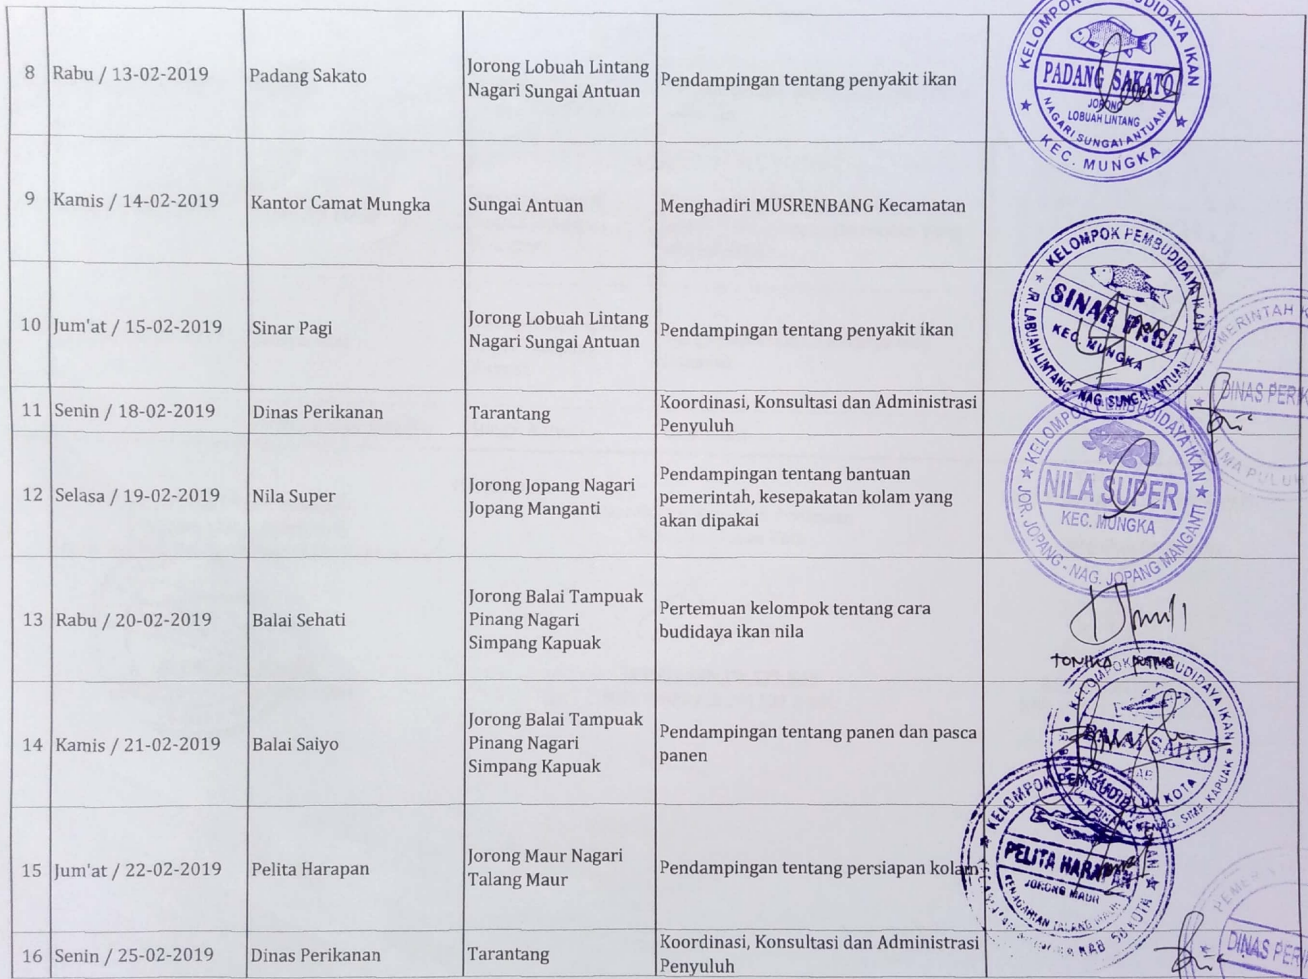 8 Rabu / 13-02-2019 Padang Sakato Jorong Lobuah Lintang Nagari Sungai Antuan Pendampingan tentang penyakit ikan
KELOMPOK PEMBUDIDAYA IKAN
PADANG SAKATO
JORONG
LOBUAH LINTANG
NAGARI SUNGAI ANTUAN
KEC. MUNGKA
9 Kamis / 14-02-2019 Kantor Camat Mungka Sungai Antuan Menghadiri MUSRENBANG Kecamatan
10 Jum'at / 15-02-2019 Sinar Pagi Jorong Lobuah Lintang Nagari Sungai Antuan Pendampingan tentang penyakit ikan
KELOMPOK PEMBUDIDAYA IKAN
SINAR PAGI
KEC. MUNGKA
JR. LABUAH LINTANG - NAG. SUNGAI ANTUAN
11 Senin / 18-02-2019 Dinas Perikanan Tarantang Koordinasi, Konsultasi dan Administrasi Penyuluh
MERINTAH K
DINAS PERIK
IMA PULUH
12 Selasa / 19-02-2019 Nila Super Jorong Jopang Nagari Jopang Manganti Pendampingan tentang bantuan pemerintah, kesepakatan kolam yang akan dipakai
KELOMPOK PEMBUDIDAYA IKAN
NILA SUPER
KEC. MUNGKA
JOR. JOPANG - NAG. JOPANG MANGANTI
13 Rabu / 20-02-2019 Balai Sehati Jorong Balai Tampuak Pinang Nagari Simpang Kapuak Pertemuan kelompok tentang cara budidaya ikan nila
14 Kamis / 21-02-2019 Balai Saiyo Jorong Balai Tampuak Pinang Nagari Simpang Kapuak Pendampingan tentang panen dan pasca panen
BALAI SAIYO
15 Jum'at / 22-02-2019 Pelita Harapan Jorong Maur Nagari Talang Maur Pendampingan tentang persiapan kolam
PELITA HARAPAN
JORONG MAUR
KENAGARIAN TALANG MAUR
KAB 50 KOTA
16 Senin / 25-02-2019 Dinas Perikanan Tarantang Koordinasi, Konsultasi dan Administrasi Penyuluh
DINAS PERI